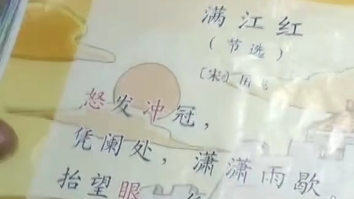 满江红
（节选）
〔宋〕岳
怒发冲冠，
凭阑处，潇潇雨歇
抬望眼